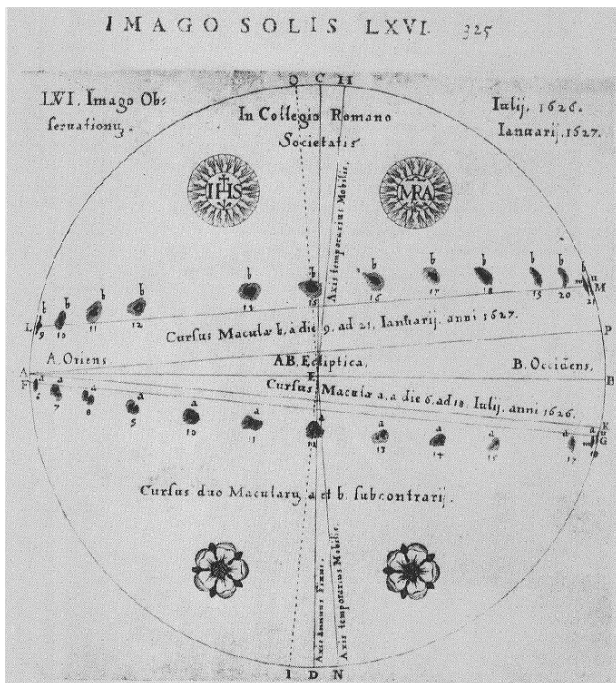 IMAGO SOLIS LXVI. 325
O C H
LVI. Imago Ob-
seruationũ.
In Collegio Romano
Societatis
Iulij. 1626.
Ianuarij. 1627.
IHS
MRA
Axis temporarius Mobilis.
b b b b b b b b b b b b
L 9 10 11 12 14 15 16 17 18 19 20 21 M
Cursus Maculæ b, a die 9. ad 21. Ianuarij. anni 1627.
P
A. Oriens
AB. Ecliptica.
B. Occidens.
A E B
F
Cursus Maculæ a. a die 6. ad 18. Iulij. anni 1626.
K
a a a a a a a a a a a
6 7 8 9 10 11 12 13 14 15 17 18 G
Cursus duo Macularũ a et b. subcontrarij.
Axis Annuus Fixus.
Axis temporarius Mobilis.
I D N